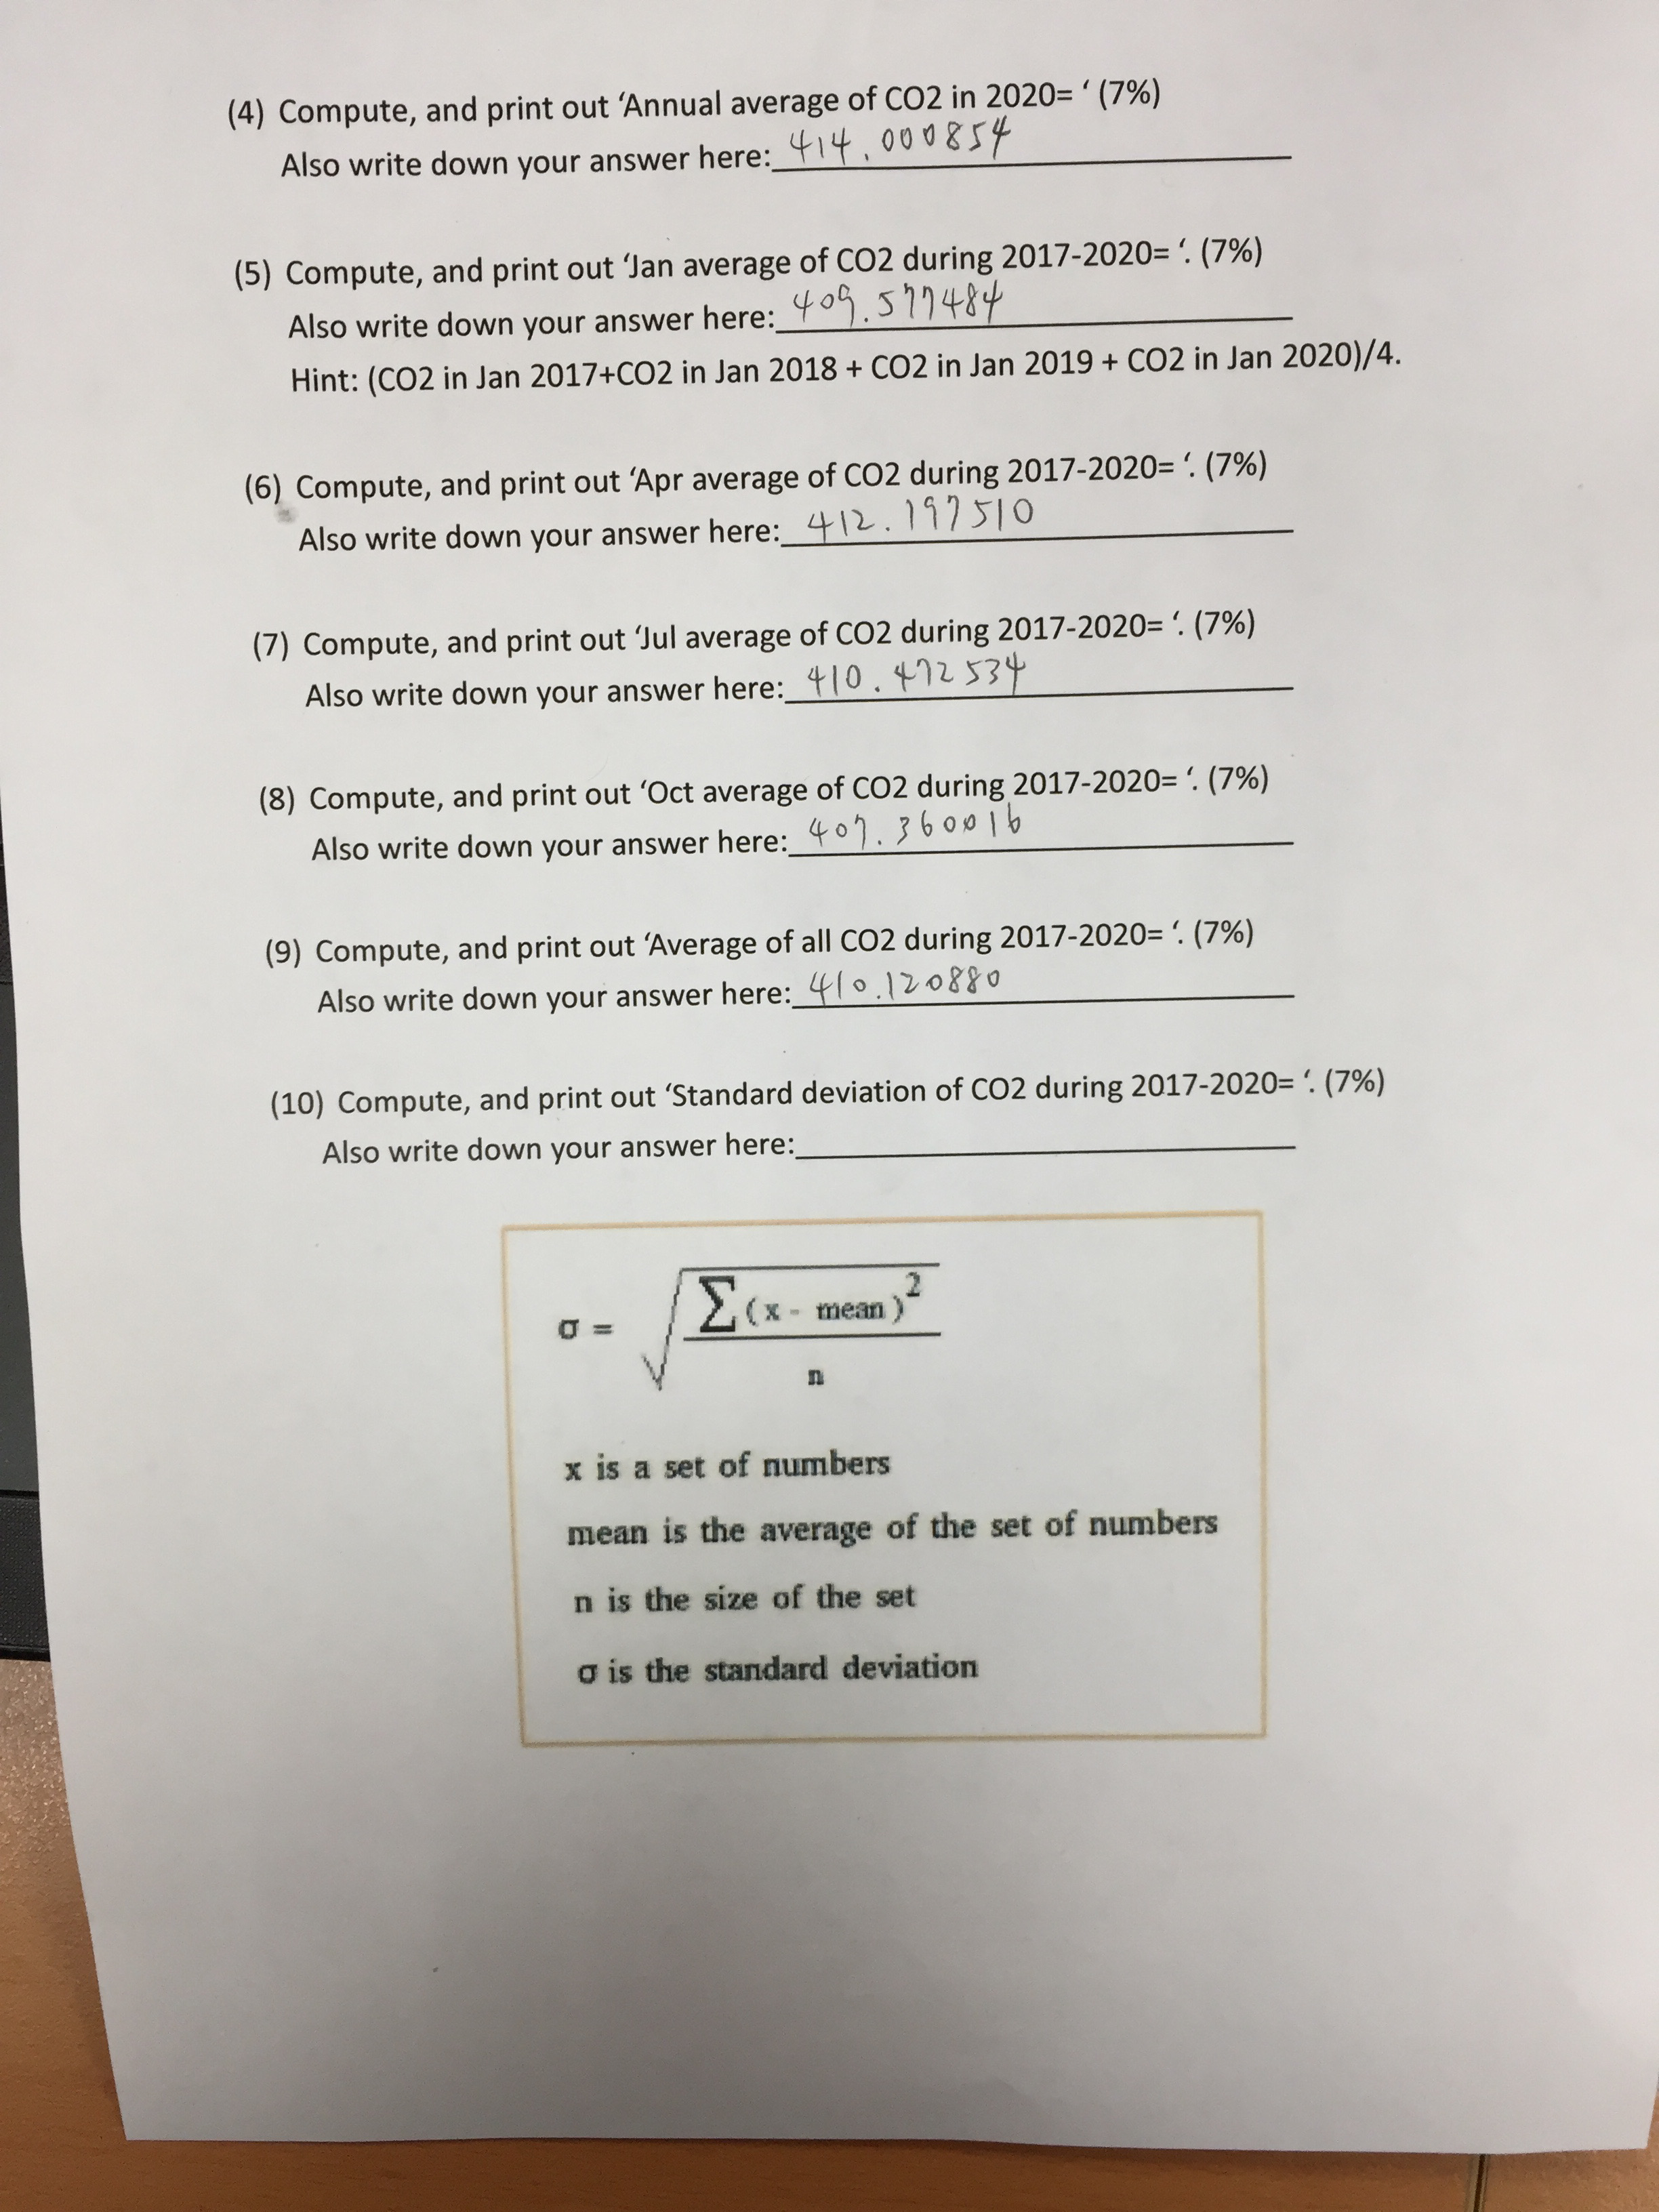 (4) Compute, and print out ‘Annual average of CO2 in 2020= ‘ (7%)
Also write down your answer here: 414.000854
(5) Compute, and print out ‘Jan average of CO2 during 2017-2020= ‘. (7%)
Also write down your answer here: 409.577484
Hint: (CO2 in Jan 2017+CO2 in Jan 2018 + CO2 in Jan 2019 + CO2 in Jan 2020)/4.
(6) Compute, and print out ‘Apr average of CO2 during 2017-2020= ‘. (7%)
Also write down your answer here: 412.197510
(7) Compute, and print out ‘Jul average of CO2 during 2017-2020= ‘. (7%)
Also write down your answer here: 410.472534
(8) Compute, and print out ‘Oct average of CO2 during 2017-2020= ‘. (7%)
Also write down your answer here: 407.360016
(9) Compute, and print out ‘Average of all CO2 during 2017-2020= ‘. (7%)
Also write down your answer here: 410.120880
(10) Compute, and print out ‘Standard deviation of CO2 during 2017-2020= ‘. (7%)
Also write down your answer here:
σ = √(∑(x - mean)² / n)
x is a set of numbers
mean is the average of the set of numbers
n is the size of the set
σ is the standard deviation